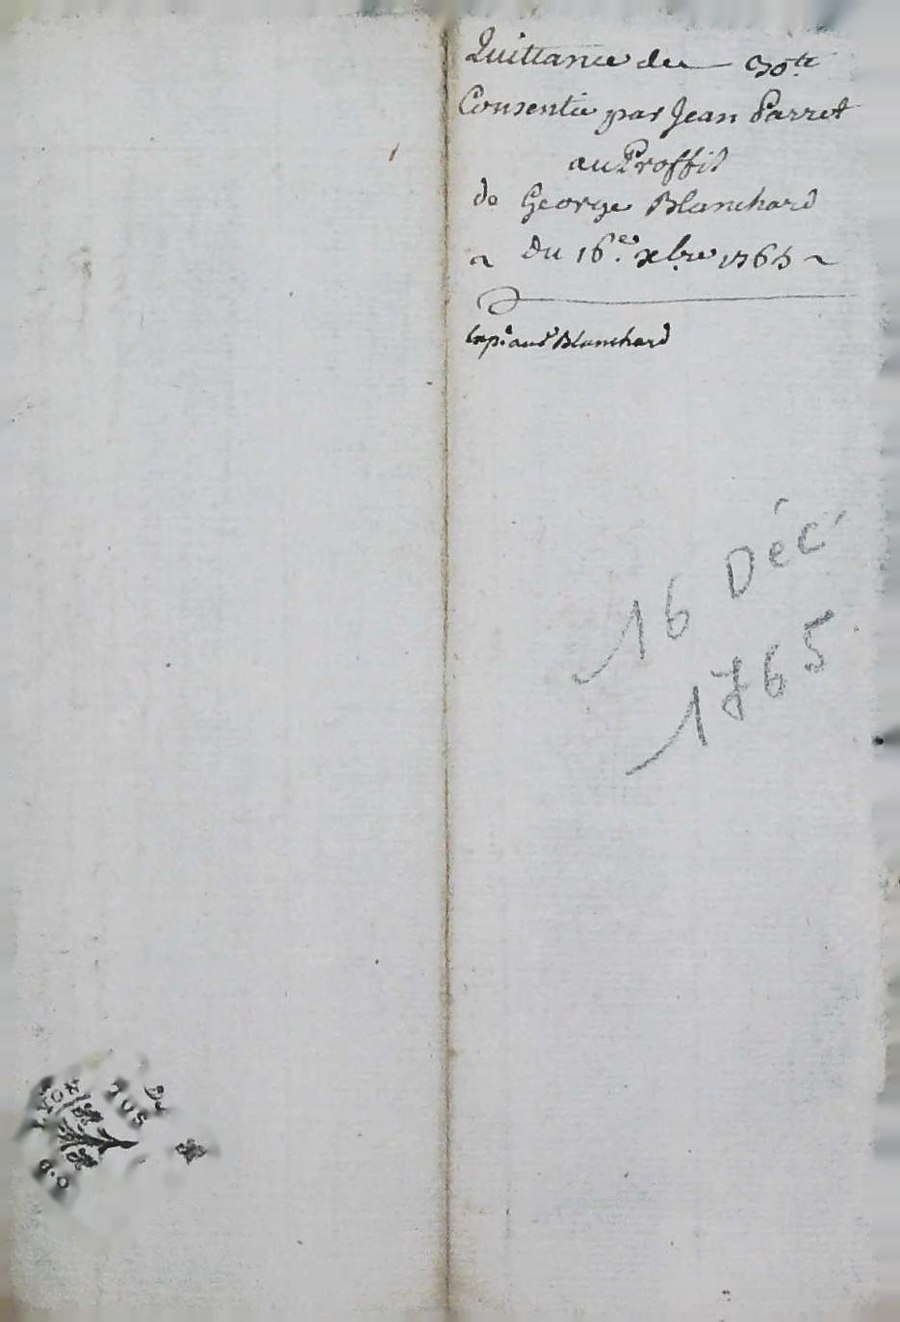 Quittance de 30tt
Consentie par Jean Parret
au Proffit
de George Blanchard
Du 16.e xbre 1765
Exp.é aud.t Blanchard
16 Déc.
1765